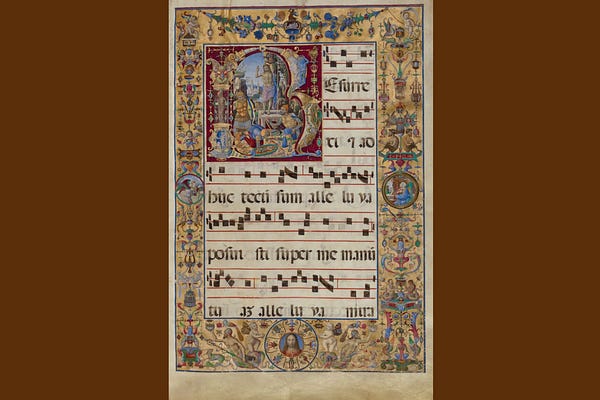 REsurre
xi ⁊ ad
huc tecū sum alle lu ya
posui sti super me manū
tu aꝫ alle lu ya mira